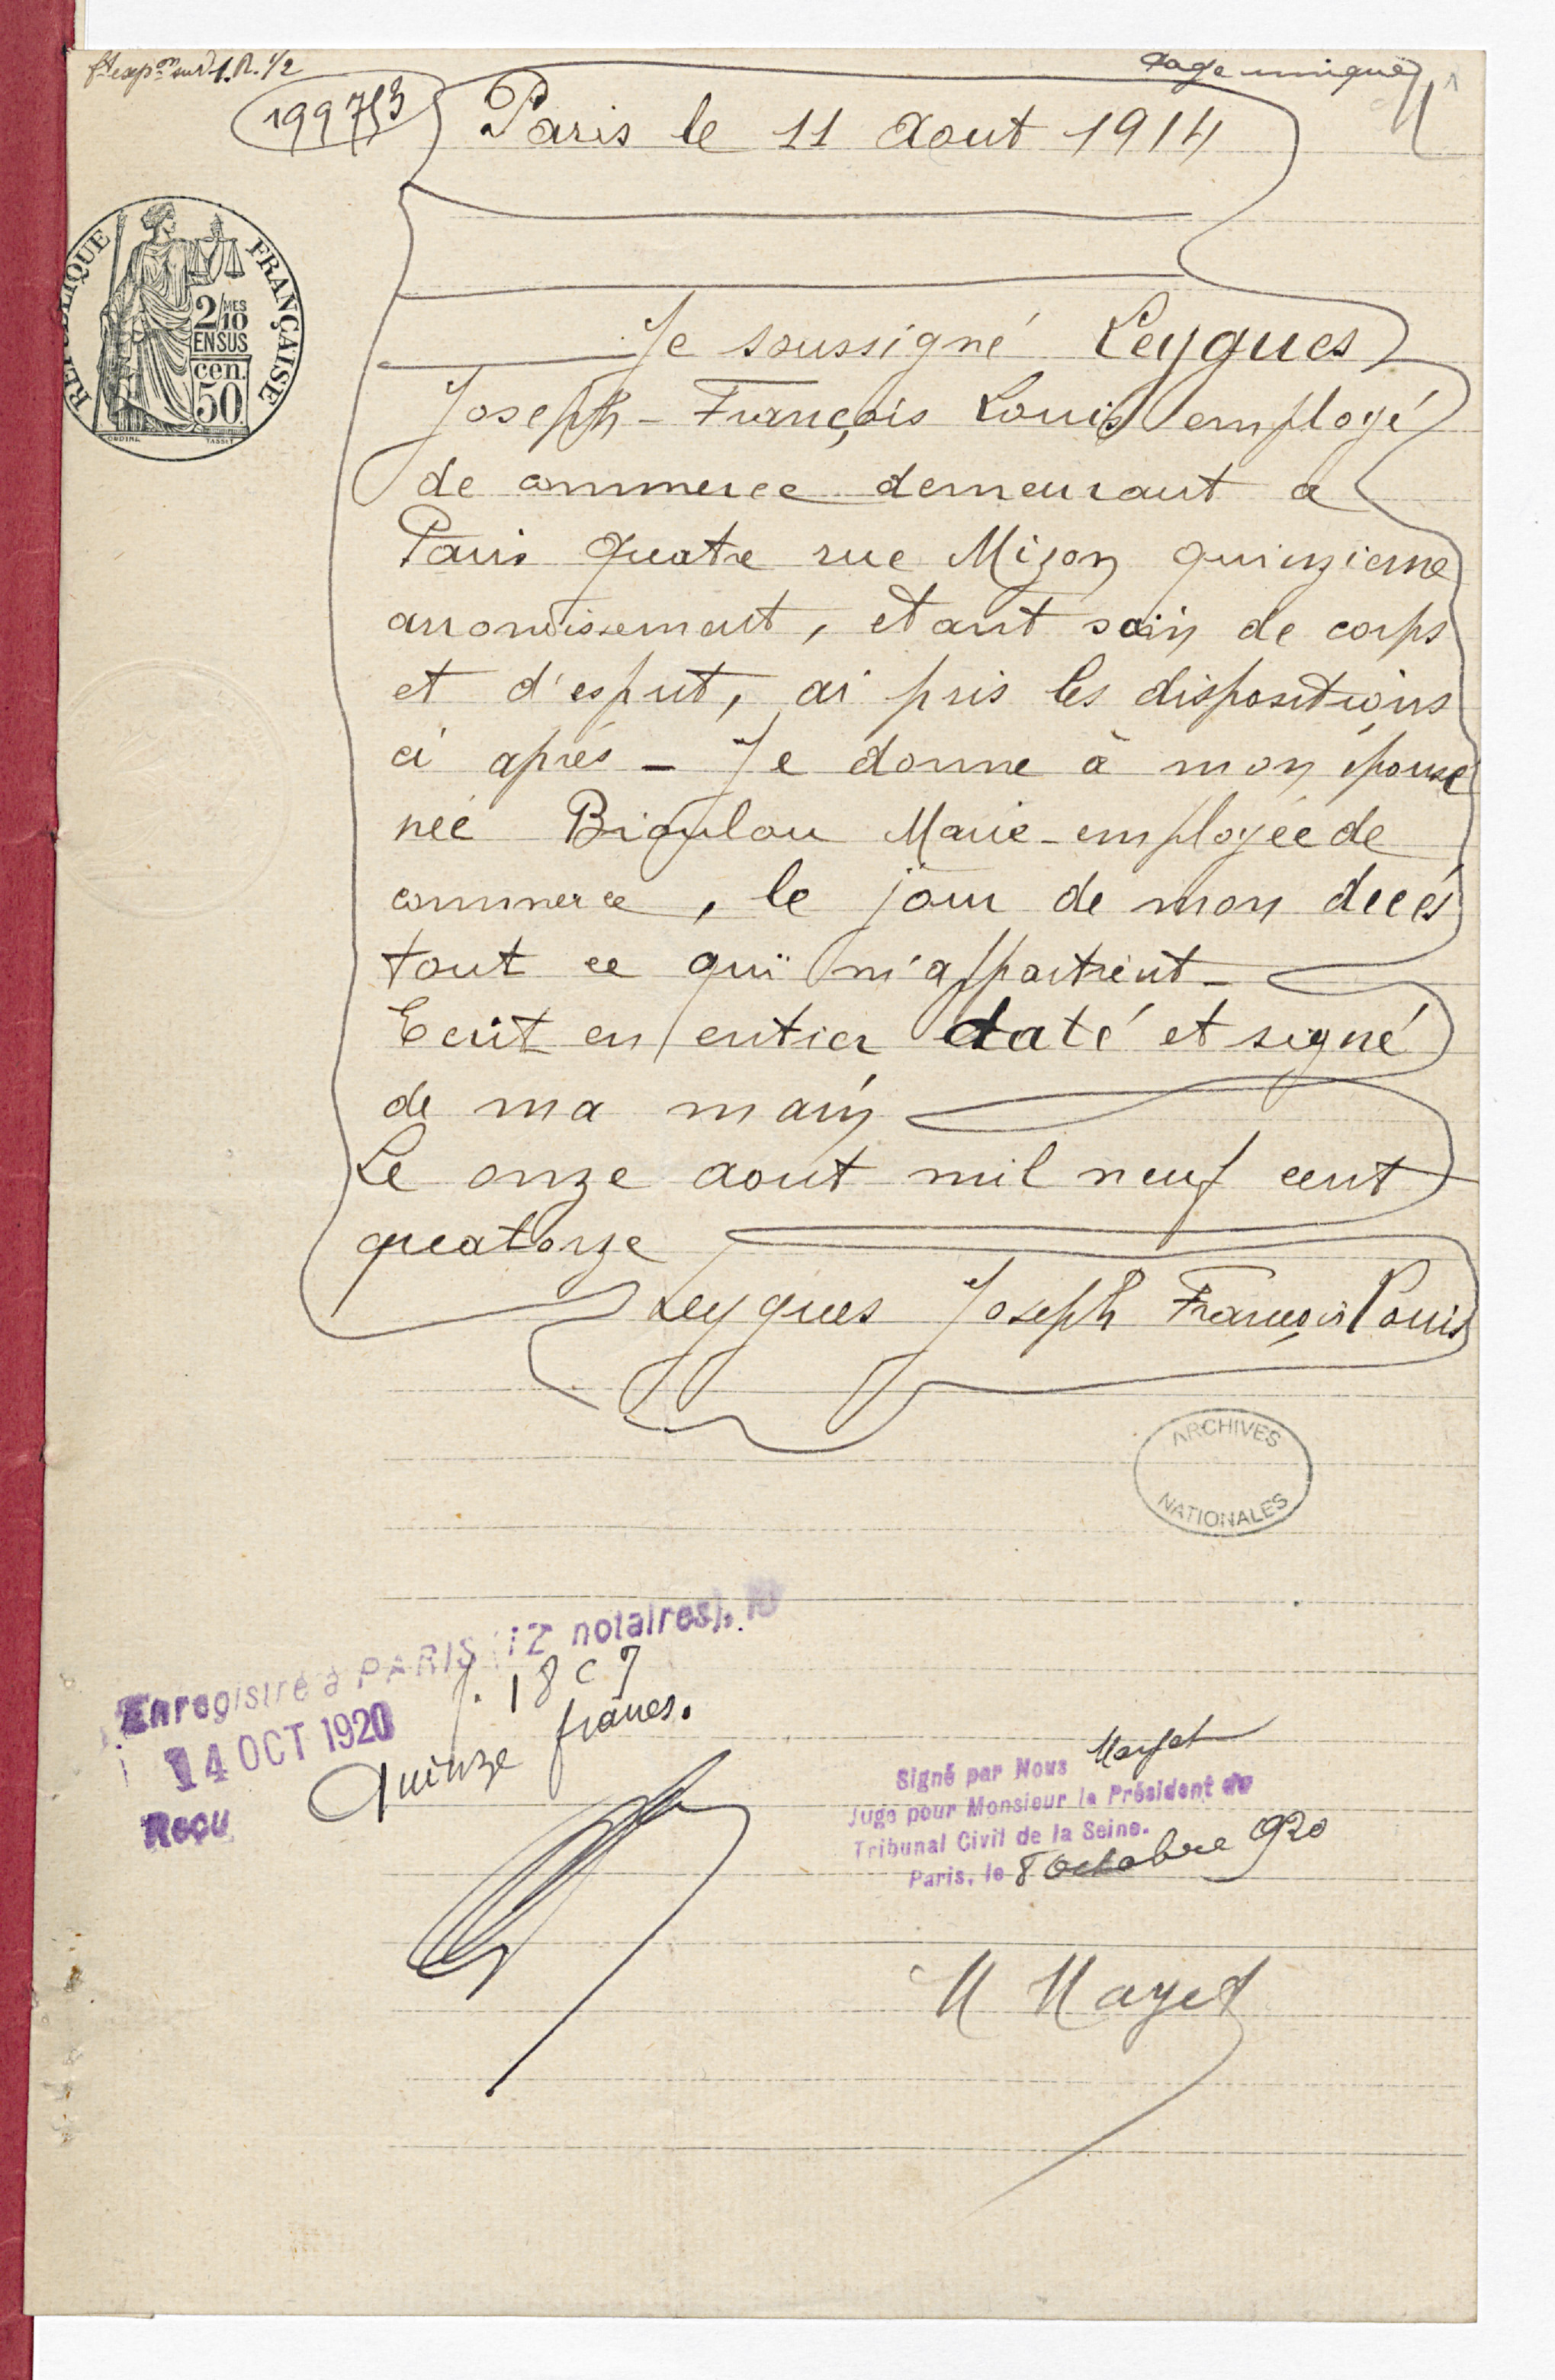 page unique
199753
Paris le 11 Aout 1914
RÉPUBLIQUE FRANÇAISE
2/10 MES
EN SUS
cen.
50
Je soussigné Leygues
Joseph - François Louis employé
de commerce demeurant a
Paris Quatre rue Mizon quinzieme
arrondissement, etant sain de corps
et d'esprit, ai pris les dispositions
ci après - Je donne à mon épouse
née Bioulou Marie - employée de
commerce, le jour de mon decés
tout ce qui m'appartient -
Ecrit en entier daté et signé
de ma main
Le onze aout mil neuf cent
quatorze
Leygues Joseph François Louis
ARCHIVES
NATIONALES
Enregistré à PARIS notaires).
14 OCT 1920
Reçu Quinze francs.
Signé par Nous
Juge pour Monsieur le Président du
Tribunal Civil de la Seine.
Paris, le 8 Octobre 920